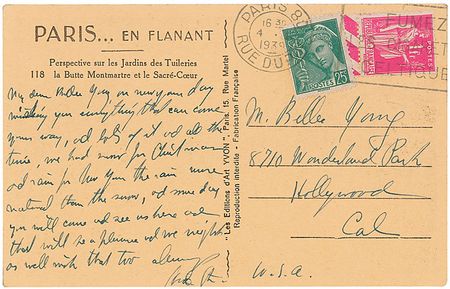 PARIS... EN FLANANT
Perspective sur les Jardins des Tuileries
118 la Butte Montmartre et le Sacré-Cœur
My dear Belley Guy on new year day
wishing you everything that can come
your way, and lots of it and all the
time, we had snow for Christmas
and rain for New Year the rain more
natural than the snow, and some day
you will come and see us here and
that will be a pleasure and we might
as well wish that too
"Les Editions d'Art YVON", Paris, 15, Rue Martel
Reproduction interdite - Fabrication Française
PARIS 80
16 30
4
193
RUE DU
25
POSTES
POSTES
1F
FUMEZ
M. Belley Young
8710 Wonderland Park
Hollywood
Cal
U.S.A.